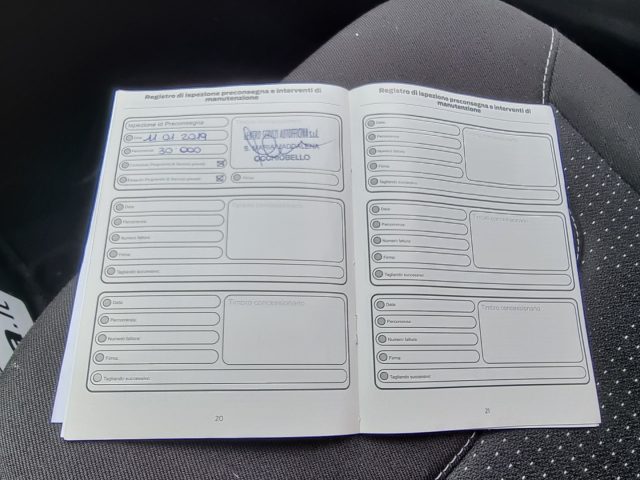 Registro di ispezione preconsegna e interventi di
manutenzione
Ispezione di Preconsegna
Data: 11 01 2019
Percorrenza: 30 000
Firma:
CENTRO SERVIZI AUTOFFICINA s.r.l.
S. MARIA MADDALENA
OCCHIOBELLO
Data:
Percorrenza:
Numero fattura:
Firma:
Tagliando successivo:
Timbro concessionario
Data:
Percorrenza:
Numero fattura:
Firma:
Tagliando successivo:
Timbro concessionario
20
Registro di ispezione preconsegna e interventi di
manutenzione
Data:
Percorrenza:
Numero fattura:
Firma:
Tagliando successivo:
Timbro concessionario
Data:
Percorrenza:
Numero fattura:
Firma:
Tagliando successivo:
Timbro concessionario
Data:
Percorrenza:
Numero fattura:
Firma:
Tagliando successivo:
Timbro concessionario
21